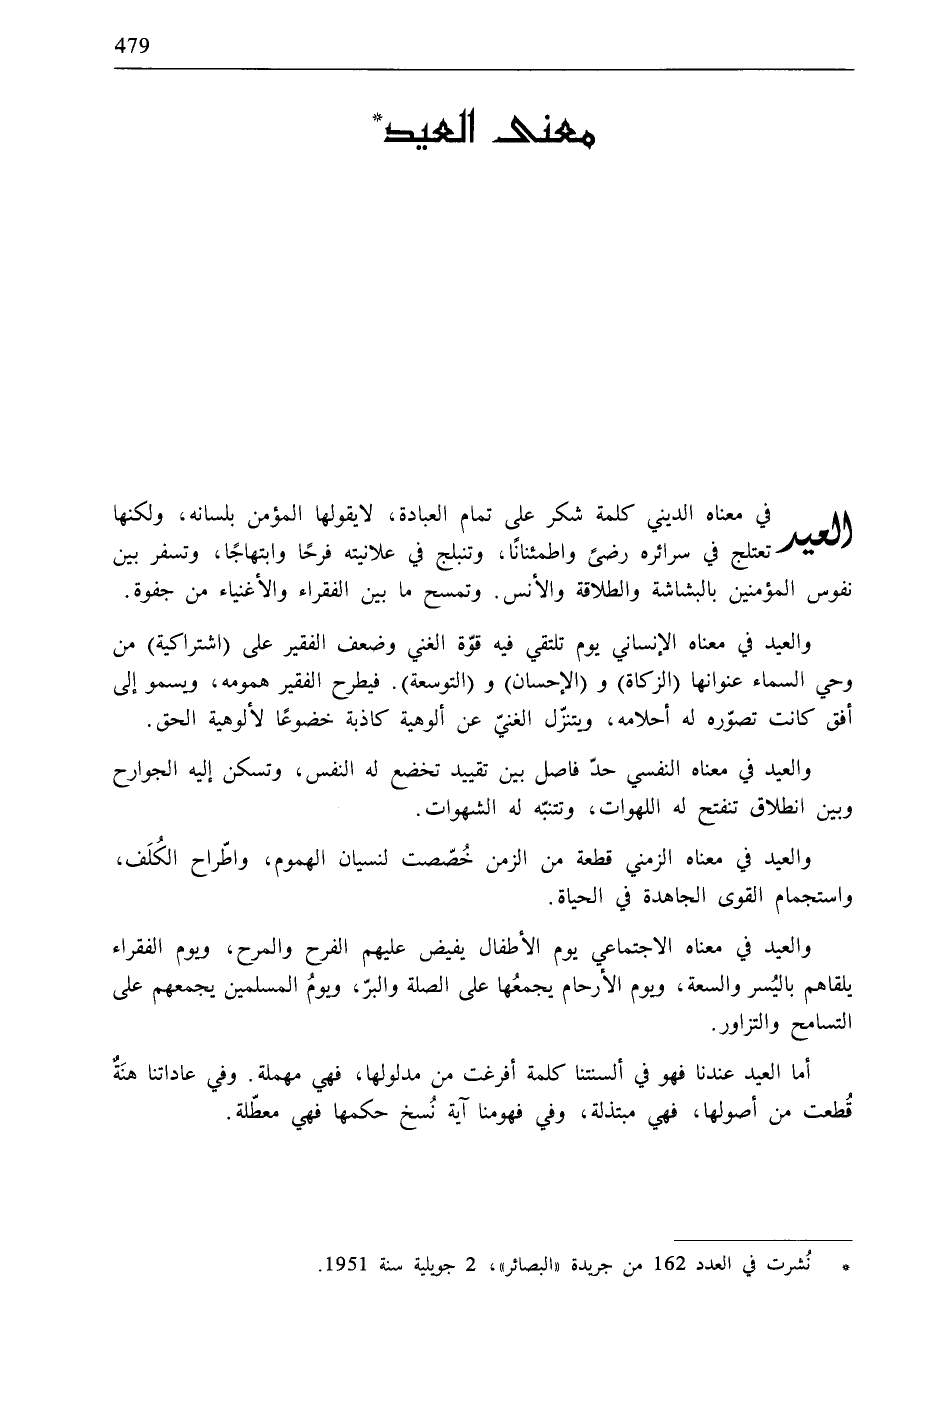 479
معنى العيد*
العيد في معناه الديني كلمة شكر على تمام العبادة، لايقولها المؤمن بلسانه، ولكنها
تعتلج في سرائره رضىً واطمئنانًا، وتنبلج في علانيته فرحًا وابتهاجًا، وتسفر بين
نفوس المؤمنين بالبشاشة والطلاقة والأنس. وتمسح ما بين الفقراء والأغنياء من جفوة.
والعيد في معناه الإنساني يوم تلتقي فيه قوّة الغني وضعف الفقير على (اشتراكية) من
وحي السماء عنوانها (الزكاة) و (الإحسان) و (التوسعة). فيطرح الفقير همومه، ويسمو إلى
أفق كانت تصوّره له أحلامه، ويتنزّل الغنيّ عن ألوهية كاذبة خضوعًا لألوهية الحق.
والعيد في معناه النفسي حدّ فاصل بين تقييد تخضع له النفس، وتسكن إليه الجوارح
وبين انطلاق تنفتح له اللهوات، وتتنبّه له الشهوات.
والعيد في معناه الزمني قطعة من الزمن خُصّصت لنسيان الهموم، واطّراح الكُلَف،
واستجمام القوى الجاهدة في الحياة.
والعيد في معناه الاجتماعي يوم الأطفال يفيض عليهم الفرح والمرح، ويوم الفقراء
يلقاهم باليُسر والسعة، ويوم الأرحام يجمعُها على الصلة والبرّ، ويومُ المسلمين يجمعهم على
التسامح والتزاور.
أما العيد عندنا فهو في ألسنتنا كلمة أفرغت من مدلولها، فهي مهملة. وفي عاداتنا هنَةٌ
قُطعت من أصولها، فهي مبتذلة، وفي فهومنا آية نُسخ حكمها فهي معطّلة.
* نُشرت في العدد 162 من جريدة «البصائر»، 2 جويلية سنة 1951.